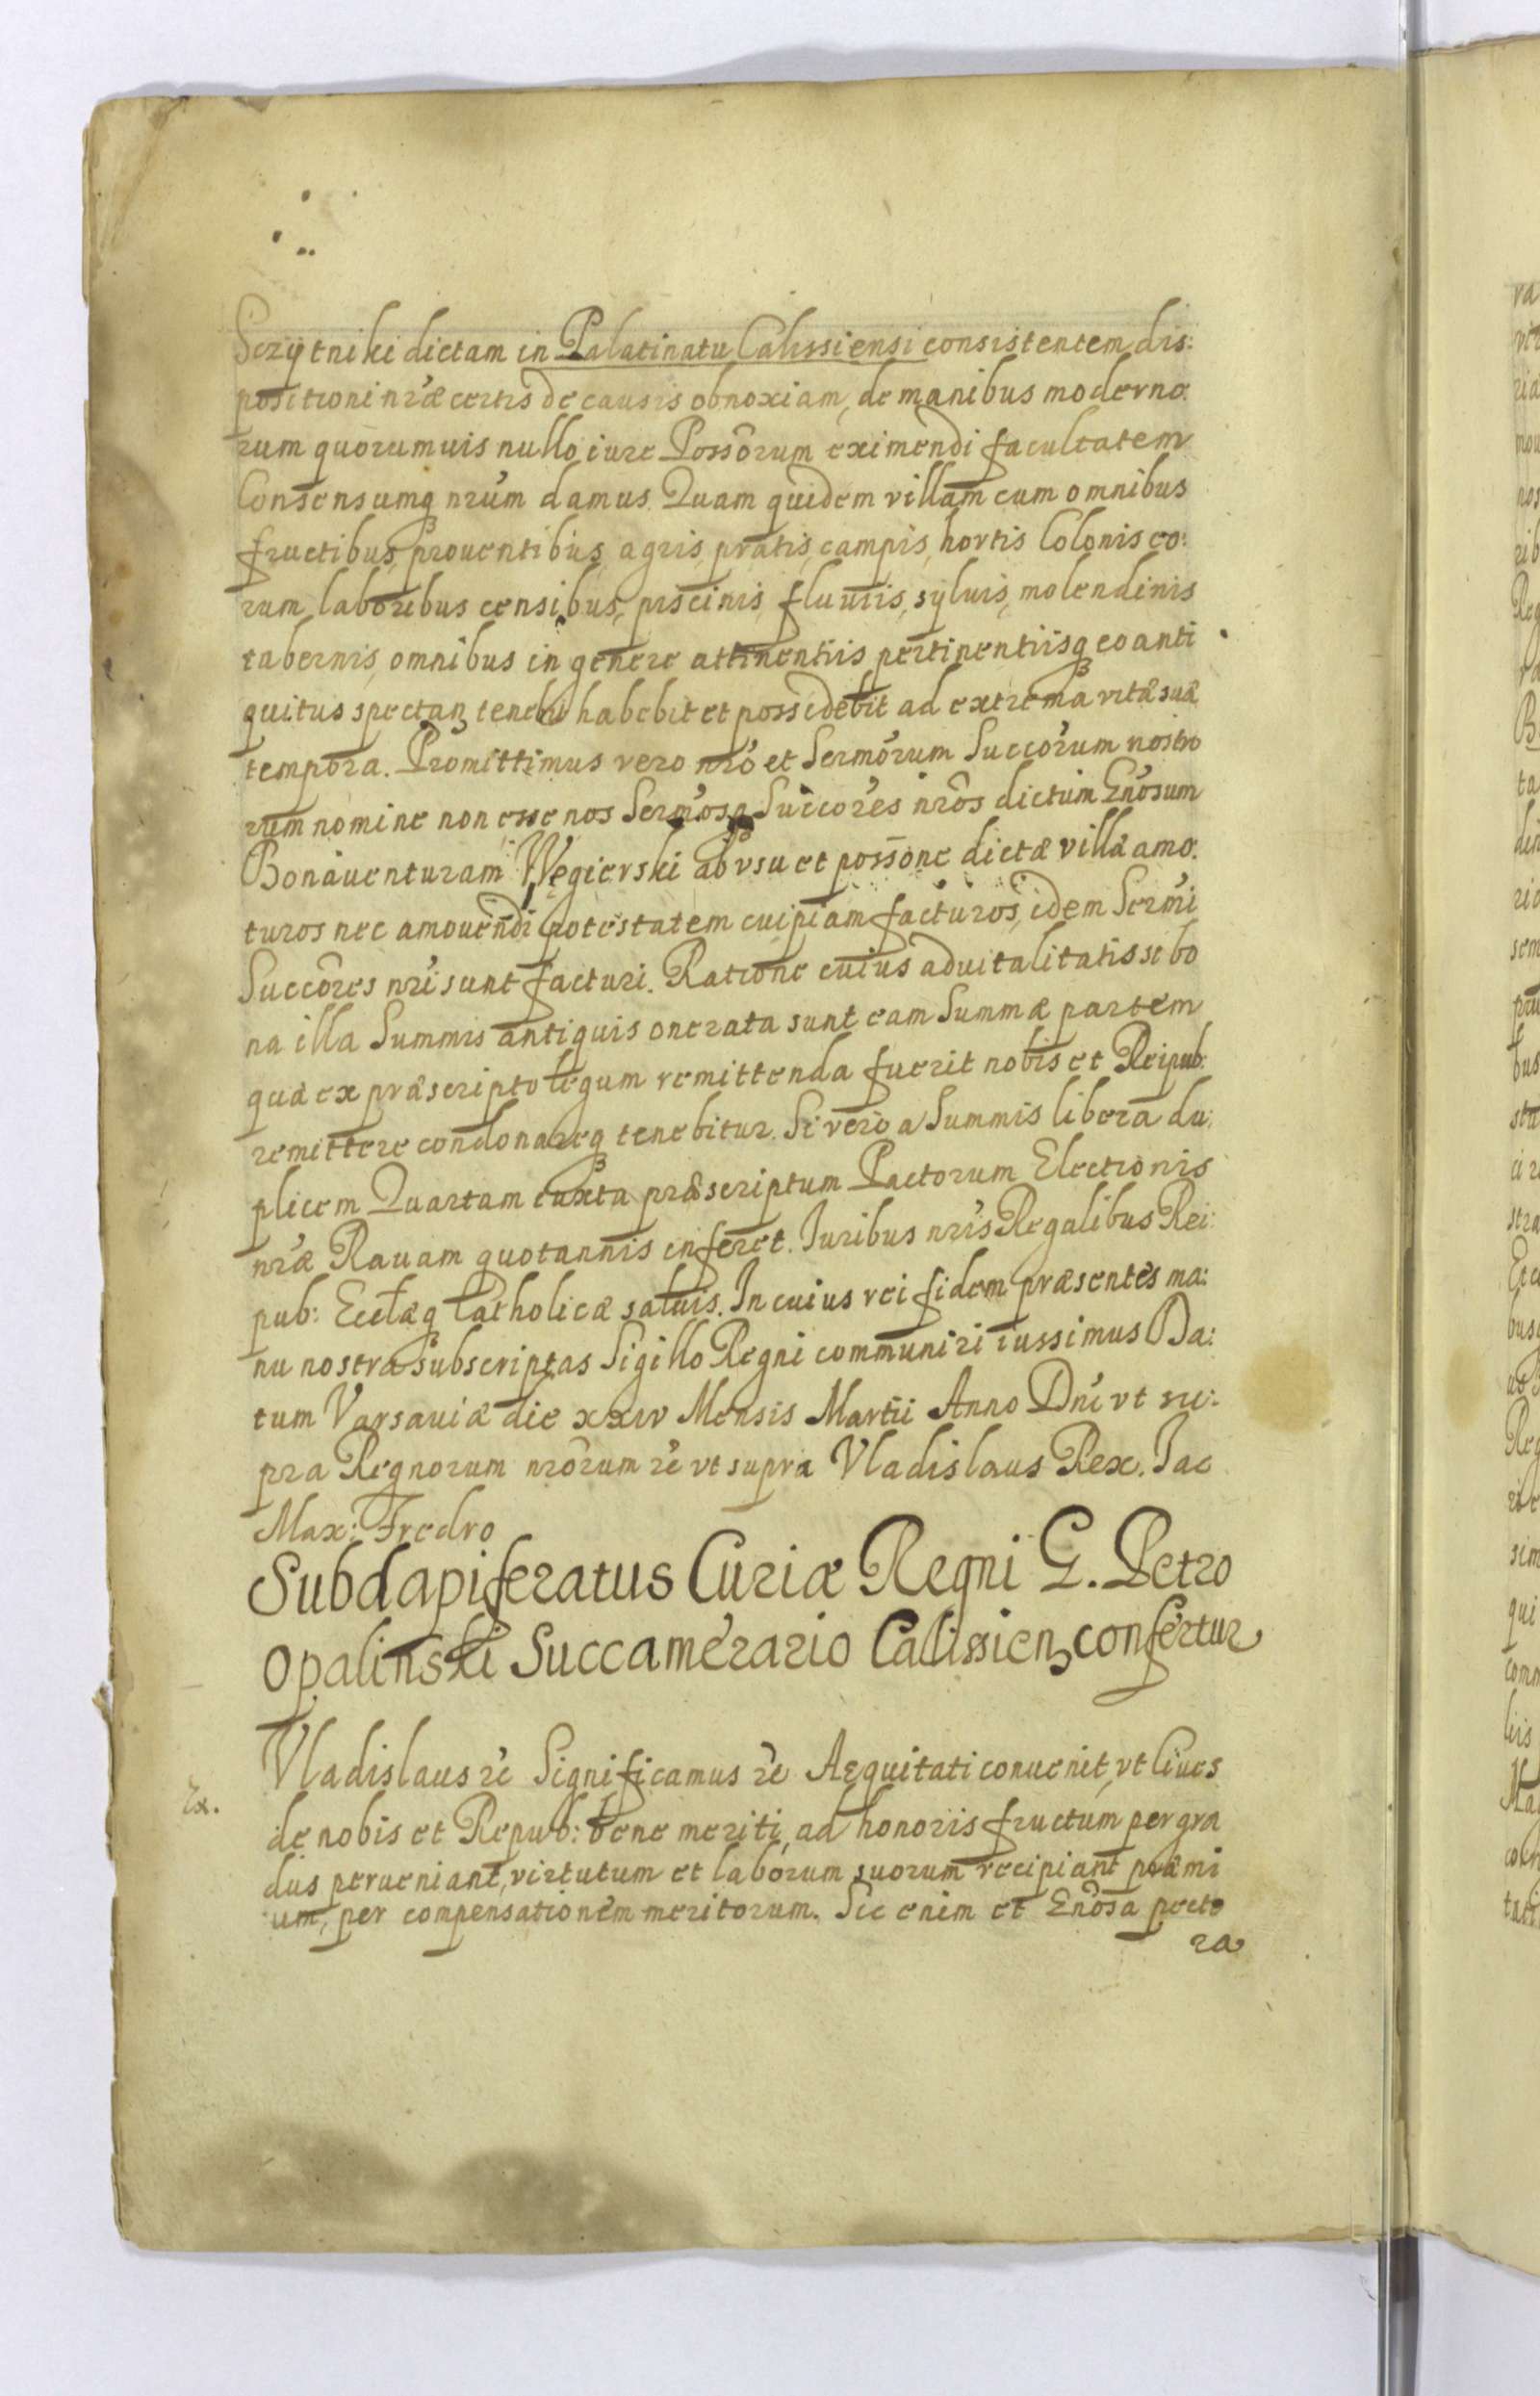 Sczÿtniki dictam in Palatinatu Calissiensi consistentem dis:
positioni nr̃æ certis de causis obnoxiam, de manibus moderno
rum quorumuis nullo iure Possõrum eximendi facultatem
Consensumq nrũm damus. Quam quidem villam cum omnibus
fructibus, prouentibus, agris, pratis, campis, hortis Colonis eo:
rum, laboribus censibus, piscinis, fluuiis, sÿluis, molendinis
tabernis, omnibus in genere attinentiis pertinentiisq eo anti
quitus spectan tenebit habebit et possidebit ad extrema vitæ suæ
tempora. Promittimus vero nr̃o et Sermõrum Succõrum nostro
rum nomine non esse nos Sermõsq Succõres nrõs dictum Gnõsum
Bonauenturam Węgierski ab vsu et possõne dictæ villæ amo
turos nec amouendi potestatem cuipiam facturos, idem Sermĩ
Succõres nrĩ sunt facturi. Ratione cuius aduitalitatis si bo
na illa Summis antiquis onerata sunt eam Summæ partem
quæ ex præscripto legum remittenda fuerit nobis et Reipub:
remittere condonareq tenebitur. Si vero a Summis libera du:
plicem Quartam iuxta præscriptum Pactorum Electionis
nr̃æ Rauam quotannis inferet. Iuribus nrĩs Regalibus Rei:
pub: Eccłæq Catholicæ saluis. In cuius rei fidem præsentes ma:
nu nostra subscriptas Sigillo Regni communiri iussimus Da:
tum Varsauiæ die xxiv Mensis Martii Anno Dnĩ vt su:
pra Regnorum nrõrum &c vt supra Vladislaus Rex. Iac
Max: Fredro
Subdapiferatus Curiæ Regni G. Petro
Opalinski Succamerario Calissien confertur
Vladislaus &c Significamus &c Aequitati conuenit, vt Ciues
Ex.
de nobis et Repub: bene meriti, ad honoris fructum per gra
dus perueniant, virtutum et laborum suorum recipiant præmi
um, per compensationem meritorum. Sic enim et Gnõsa pecto
ra